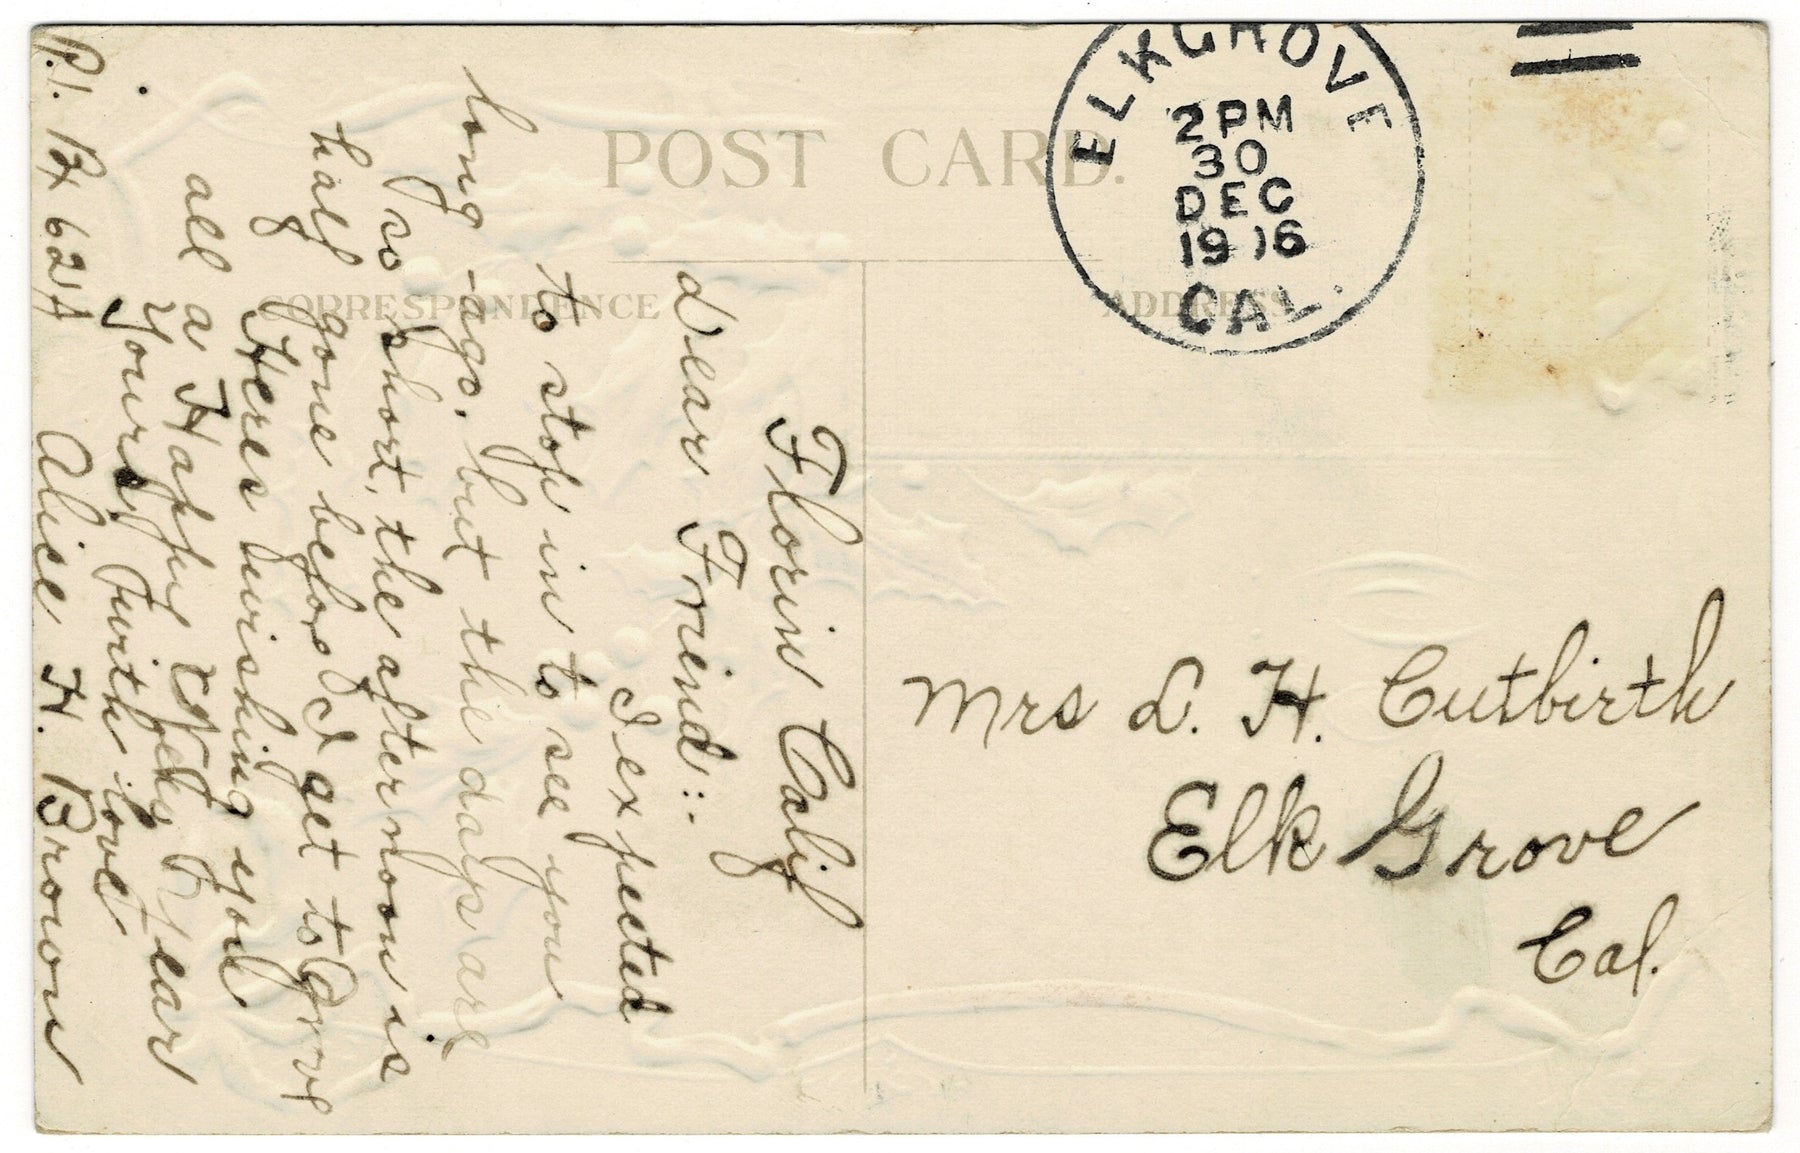 POST CARD.
CORRESPONDENCE
ADDRESS
ELK GROVE
2 PM
30
DEC
1916
CAL.
Mrs L. H. Cutbirth
Elk Grove
Cal.
Florin Calif
Dear Friend:-
I expected
to stop in to see you
long ago, but the days are
so short, the afternoon is
half gone before I get to Grove
Heres wishing you
all a Happy New Year
Yours, with love
Alice H. Brown
R.1. Bx 621A